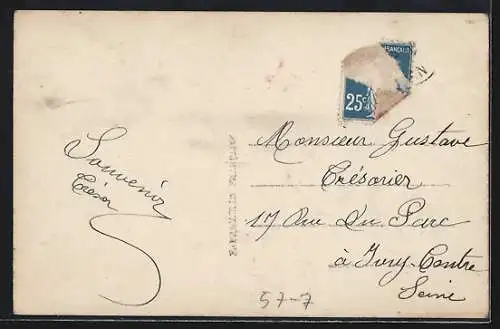 FRANÇAISE
25c
Souvenir
Trésor
Monsieur Gustave
Trésorier
17 rue du Parc
à Ivry-Centre
Seine
57-7